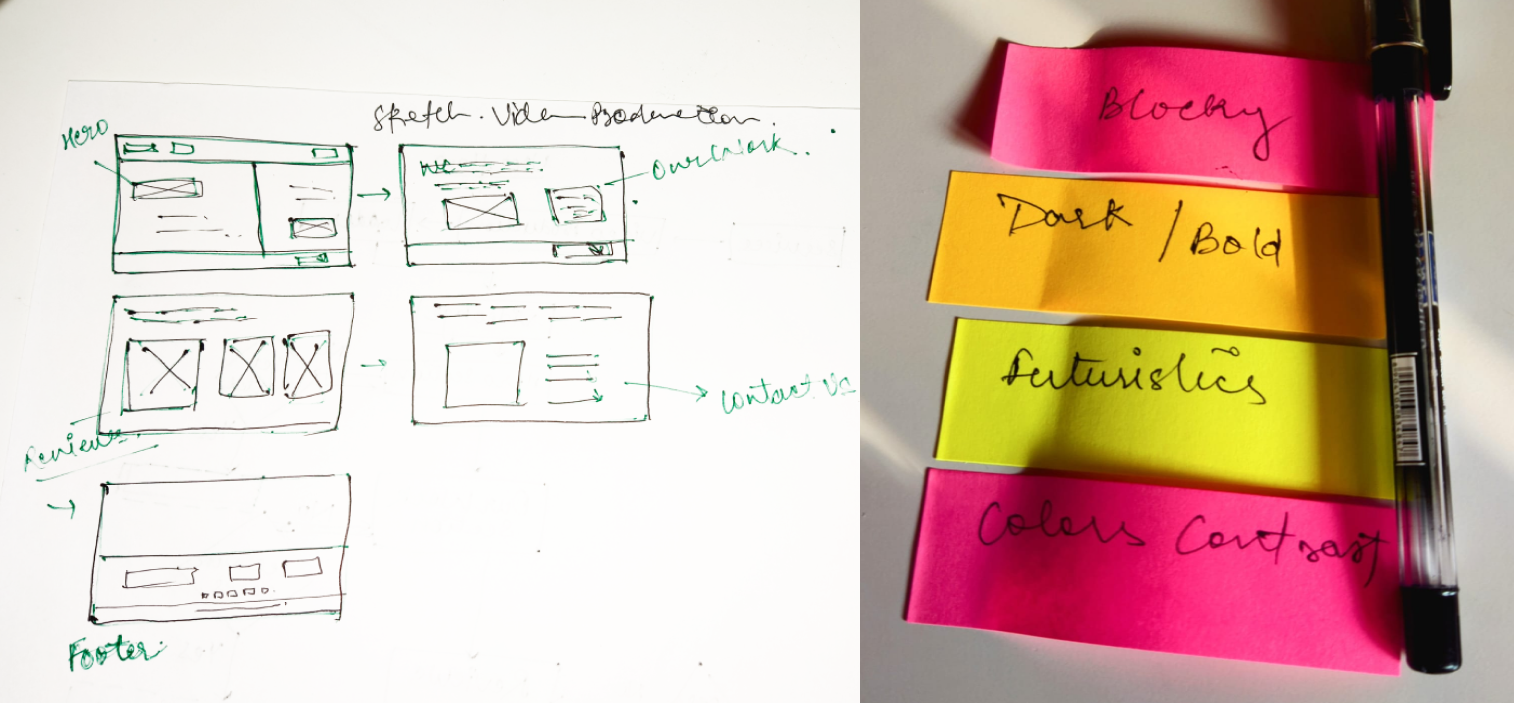 Sketch. Video Production.
Hero
we
Our Work.
Reviews.
Contact Us
Footer.
Blocky
Dark / Bold
Futuristics
Colors Contrast